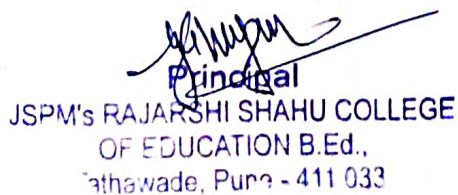 Principal
JSPM's RAJARSHI SHAHU COLLEGE
OF EDUCATION B.Ed.,
Tathawade, Pune - 411 033